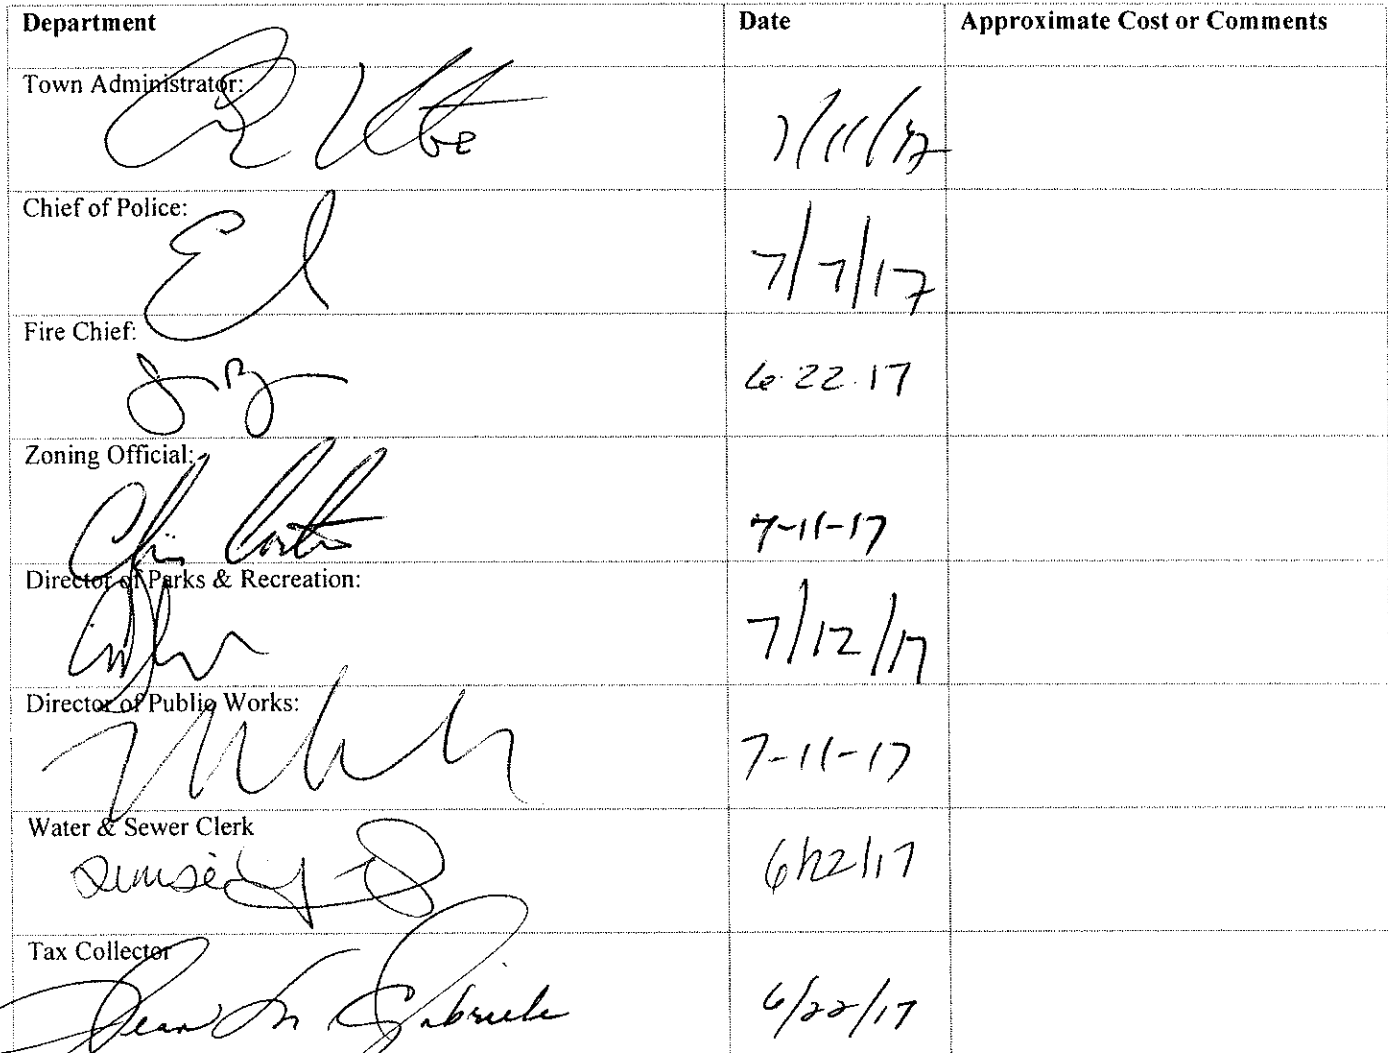 Department Date Approximate Cost or Comments
Town Administrator:
7/11/17
Chief of Police:
7/7/17
Fire Chief:
6.22.17
Zoning Official:
Chris
7-11-17
Director of Parks & Recreation:
7/12/17
Director of Public Works:
7-11-17
Water & Sewer Clerk
6/22/17
Tax Collector
Jean M Gabriele
6/22/17